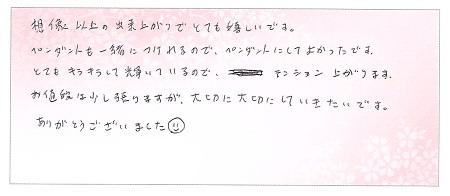 想像以上の出来上がりでとても嬉しいです。
ペンダントも一緒につけれるので、ペンダントにしてよかったです。
とてもキラキラして輝いているので、テンション上がります。
お値段は少し張りますが、大切に大切にしていきたいです。
ありがとうございました